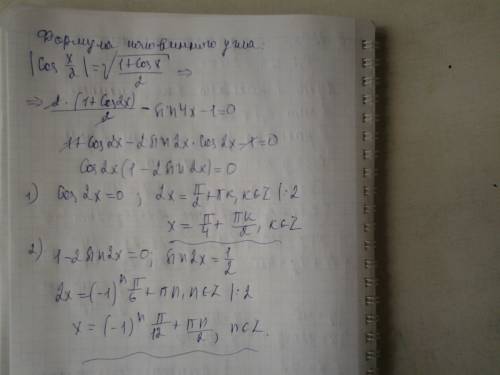 Формула половинного угла:
|Cos x/2| = √((1+Cos x)/2) ⇒
⇒ 2·(1+Cos2x)/2 − sin4x − 1 = 0
1+Cos2x − 2sin2x·Cos2x − 1 = 0
Cos2x(1−2sin2x) = 0
1) Cos2x=0; 2x = π/2 + πk, k∈Z |:2
x = π/4 + πk/2, k∈Z
2) 1−2sin2x=0; sin2x = 1/2
2x = (−1)ⁿ π/6 + πn, n∈Z |:2
x = (−1)ⁿ π/12 + πn/2, n∈Z.